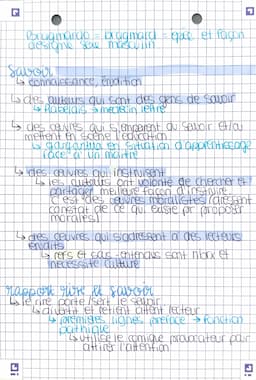 Braquemardo = braquemard = épée et façon
désigne sexe masculin
Savoir
↳ connaissance, érudition
↳ des auteurs qui sont des gens de savoir
↳ Rabelais → médecin lettré
↳ des œuvres qui s'emparent du savoir et/ou
mettent en scène l'éducation
↳ gargantua en situation d'apprentissage
face à un maître
↳ des œuvres qui instruisent
↳ les auteurs ont volonté de chercher et
partager meilleure façon d'instruire
C'est des œuvres moralistes (dressent
constat de ce qui existe pr proposer
morales)
↳ des œuvres qui s'adressent à des lecteurs
érudits
↳ refs et sous-entendus sont nbrx et
nécessite culture
rapport rire et savoir
↳ le rire porte/sert le savoir
↳ divertit et retient attent° lecteur
↳ premières lignes préface → fonction
pathique
↳ utilise le comique provocateur pour
attirer l'attention